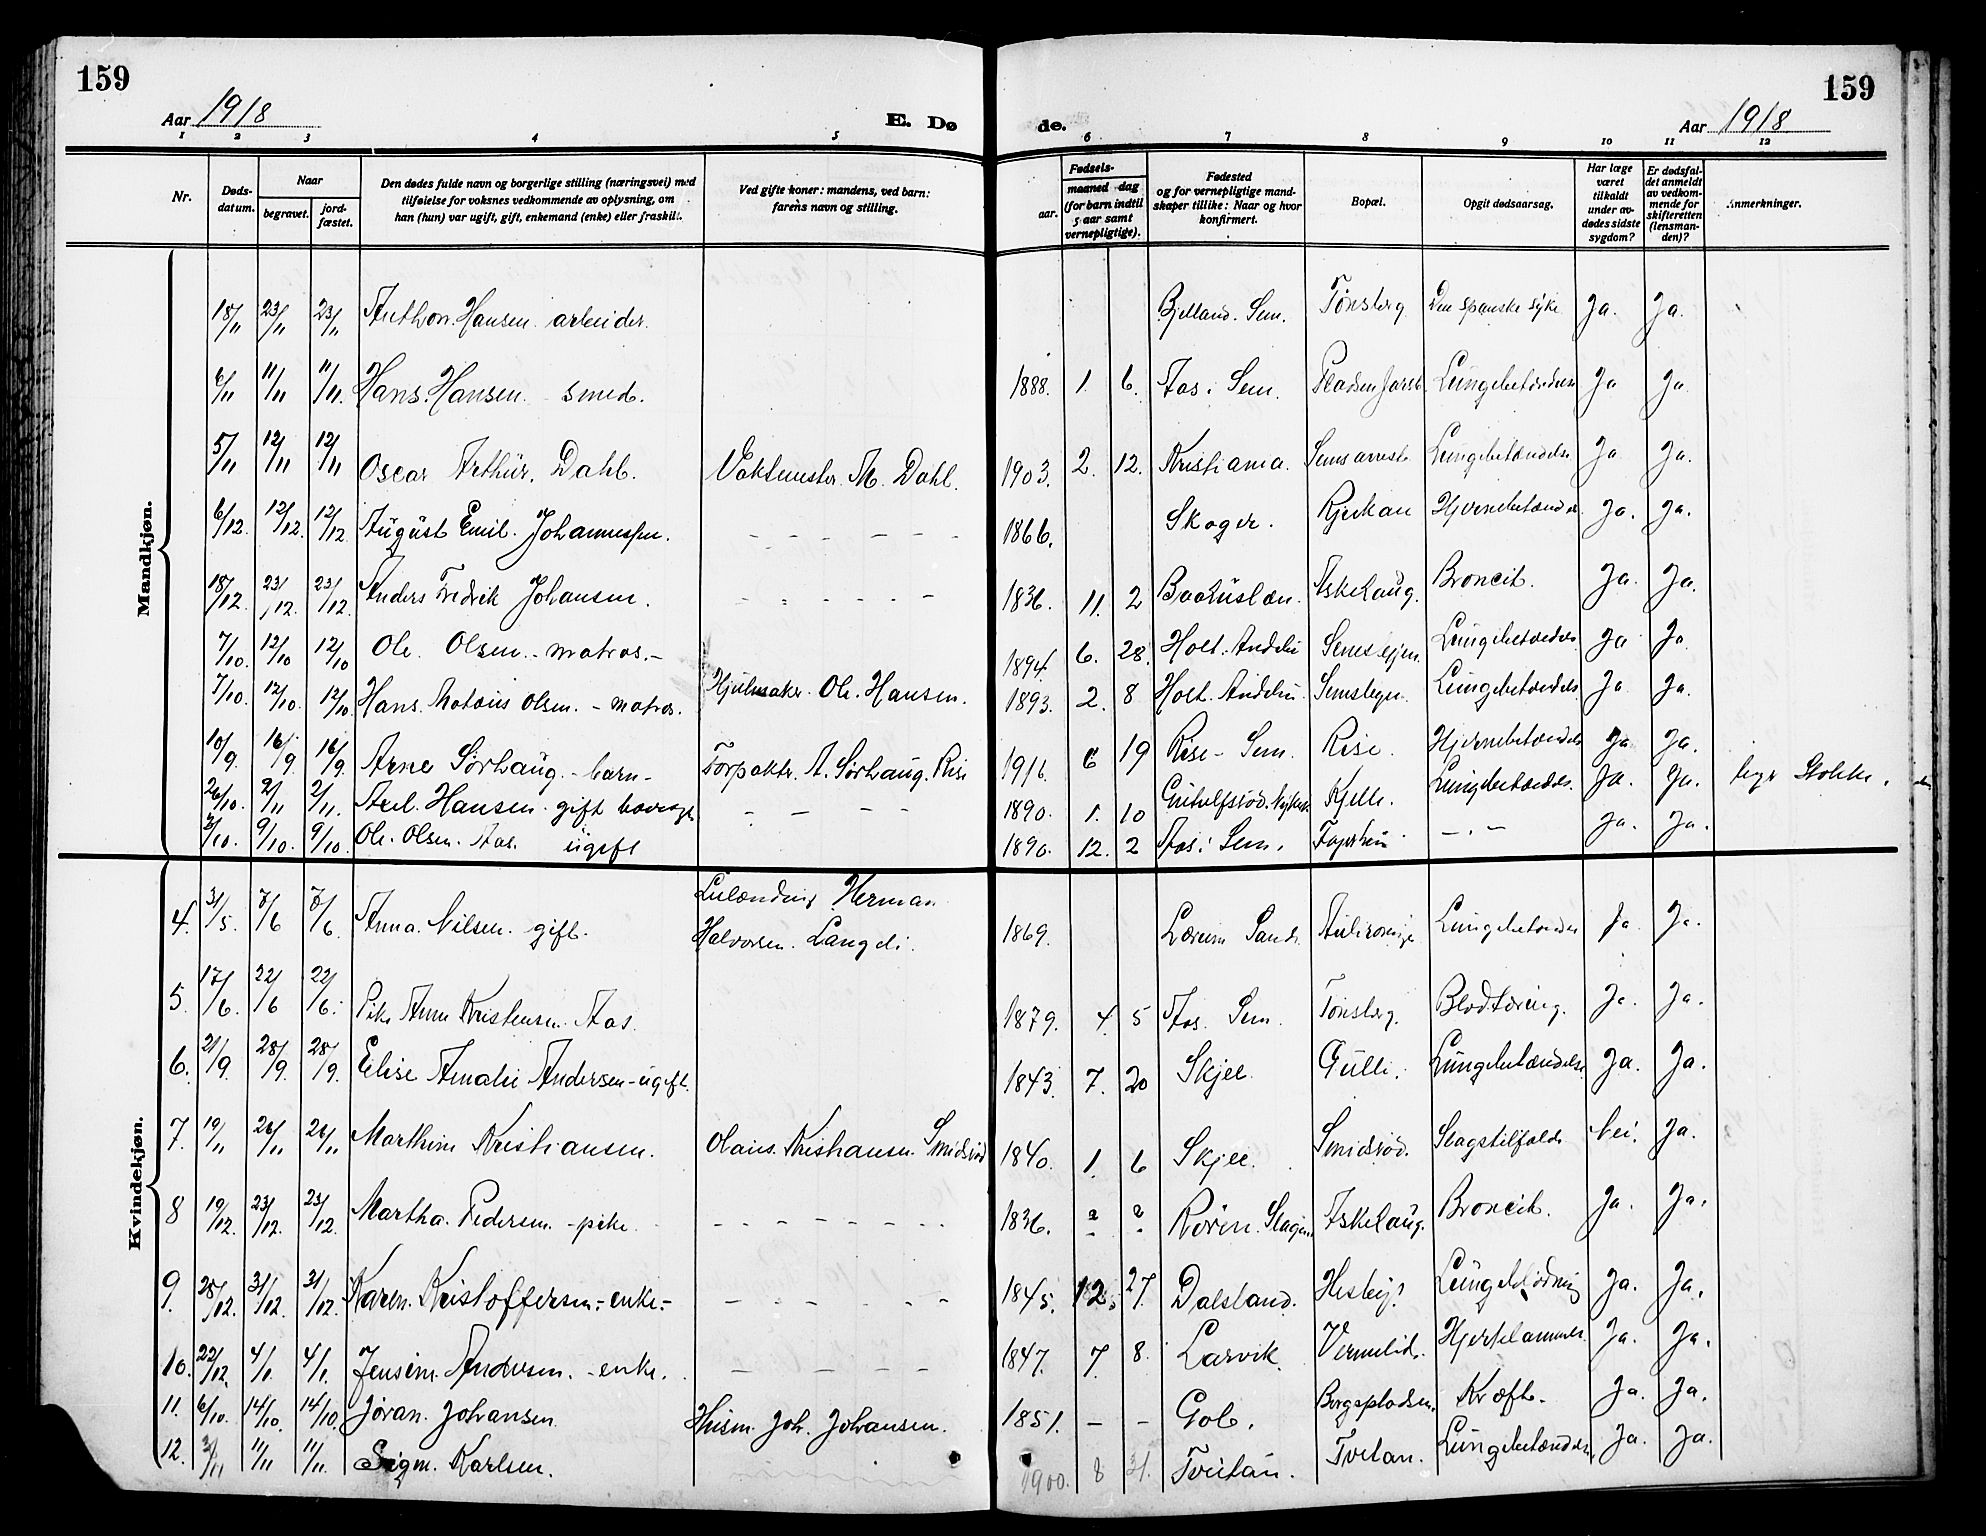 159
159
Aar 1918
E. Dø
de.
Aar 1918
1 2 3 4 5 6 7 8 9 10 11 12
Nr.
Døds-
datum.
Naar
begravet.
jord-
fæstet.
Den dødes fulde navn og borgerlige stilling (næringsvei) med
tilføielse for voksnes vedkommende av oplysning, om
han (hun) var ugift, gift, enkemand (enke) eller fraskilt.
Ved gifte koner: mandens, ved barn:
farens navn og stilling.
Fødsels-
aar.
maaned dag
(for barn indtil
5 aar samt
vernepligtige).
Fødested
og for vernepligtige mand-
skaper tillike: Naar og hvor
konfirmert.
Bopæl.
Opgit dødsaarsag.
Har læge
været
tilkaldt
under av-
dødes sidste
sygdom?
Er dødsfal-
det anmeldt
av vedkom-
mende for
skifteretten
(lensman-
den)?
Anmerkninger.
Mandkjøn.
18/11 23/11 23/11 Anthon. Hansen. arbeider. Bjelland. Sem. Tønsberg Den spanske syke Ja. Ja.
6/11 11/11 11/11. Hans. Hansen. smed. 1888. 1. 6. Aas i Sem. Lungebetændelse Ja Ja
5/11 12/11 12/11 Oscar Arthur. Dahl. Vaktmester. M. Dahl. 1903. 2. 12. Kristiania. Sems arrest Lungebetændelse Ja Ja.
6/12. 12/12. 12/12 August Emil. Johannessen. - - - - - - 1866. Skoger. Rjukan Hjernebetændelse Ja. Ja.
18/12. 23/12. 23/12. Anders Fredrik Johansen. - - - - - - 1836. 11. 2 Baahuslæn. Askehaug. Broncit. Ja. Ja.
7/10. 12/10 12/10 Ole. Olsen. - matros. - 1894. 6. 28. Holt. Andebu Semsbyen. Lungebetændelse Ja Ja
7/10. 12/10. 12/10. Hans. Mataus Olsen. - matros. Hjulmaker. Ole. Hansen. 1893. 2. 8 Holt. Andebu. Semsbyen. Lungebetændelse Ja Ja.
10/9. 16/9 16/9. Arne Sørhaug. - barn - Forpakter. A. Sørhaug. Rise 1916. 6 19 Rise - Sem. Rise. Hjernebetændelse Ja. Ja.
26/10. 2/11 2/11. Axel. Hansen. gift - - - - 1890. 1. 10 Kjelle. Lungebetændelse. Ja. Ja. Stokke.
2/10. 9/10. 9/10. Ole. Olsen. Aas. ugift 1890. 12. 2 Aas i Sem. - . - Ja. Ja.
Kvindekjøn.
Herman
4. 31/5. 7/6 7/6. Anna. Nilsen. gift. Halvorsen. 1869. Lungebetændelse Ja. Ja.
5. 17/6. 22/6 22/6. Pike Anna Kristensen. Aas. 1879. 4. 5 Aas. Sem. Tønsberg. Blodtæring. Ja. Ja.
6. 21/9. 28/9. 28/9. Elise Amalie Andersen - ugift. 1843. 7. 20 Skjee. Gulli. Lungebetændelse. Ja. Ja.
7. 19/11 26/11 26/11 Marthine Kristiansen. Olaus. Kristiansen. Smidsrød 1840. 1. 6 Skjee. Smidsrød. Slagtilfælde Nei. Ja.
8 19/12. 23/12. 23/12. Martha. Pedersen. - pike. - - - - - - - - 1836. ? ? Roren. Slagen. Askehaug. Broncit. Ja. Ja.
9. 28/12. 31/12. 31/12. Karen. Kristoffersen. - enke. - - - - - - - 1845. 12. 27. Dalsland. Hesby. Lungeblødning Ja. Ja.
10. 22/12. 4/1. 4/1. Jensine. Andersen. - enke. - - - - - 1847. 7. 8. Larvik. Vermelid. Hjertelammelse. Ja. Ja.
11. 6/10. 14/10. 14/10. Jøran. Johansen. Husm. Joh. Johansen. 1851. - - Gol. Bergsplassen. Kræft. Ja. Ja.
12. 3/11 11/11 11/11. Sigm. Karlsen. 1900. 8 31. Tveitan. Tveitan. Lungebetændelse. Ja. Ja.